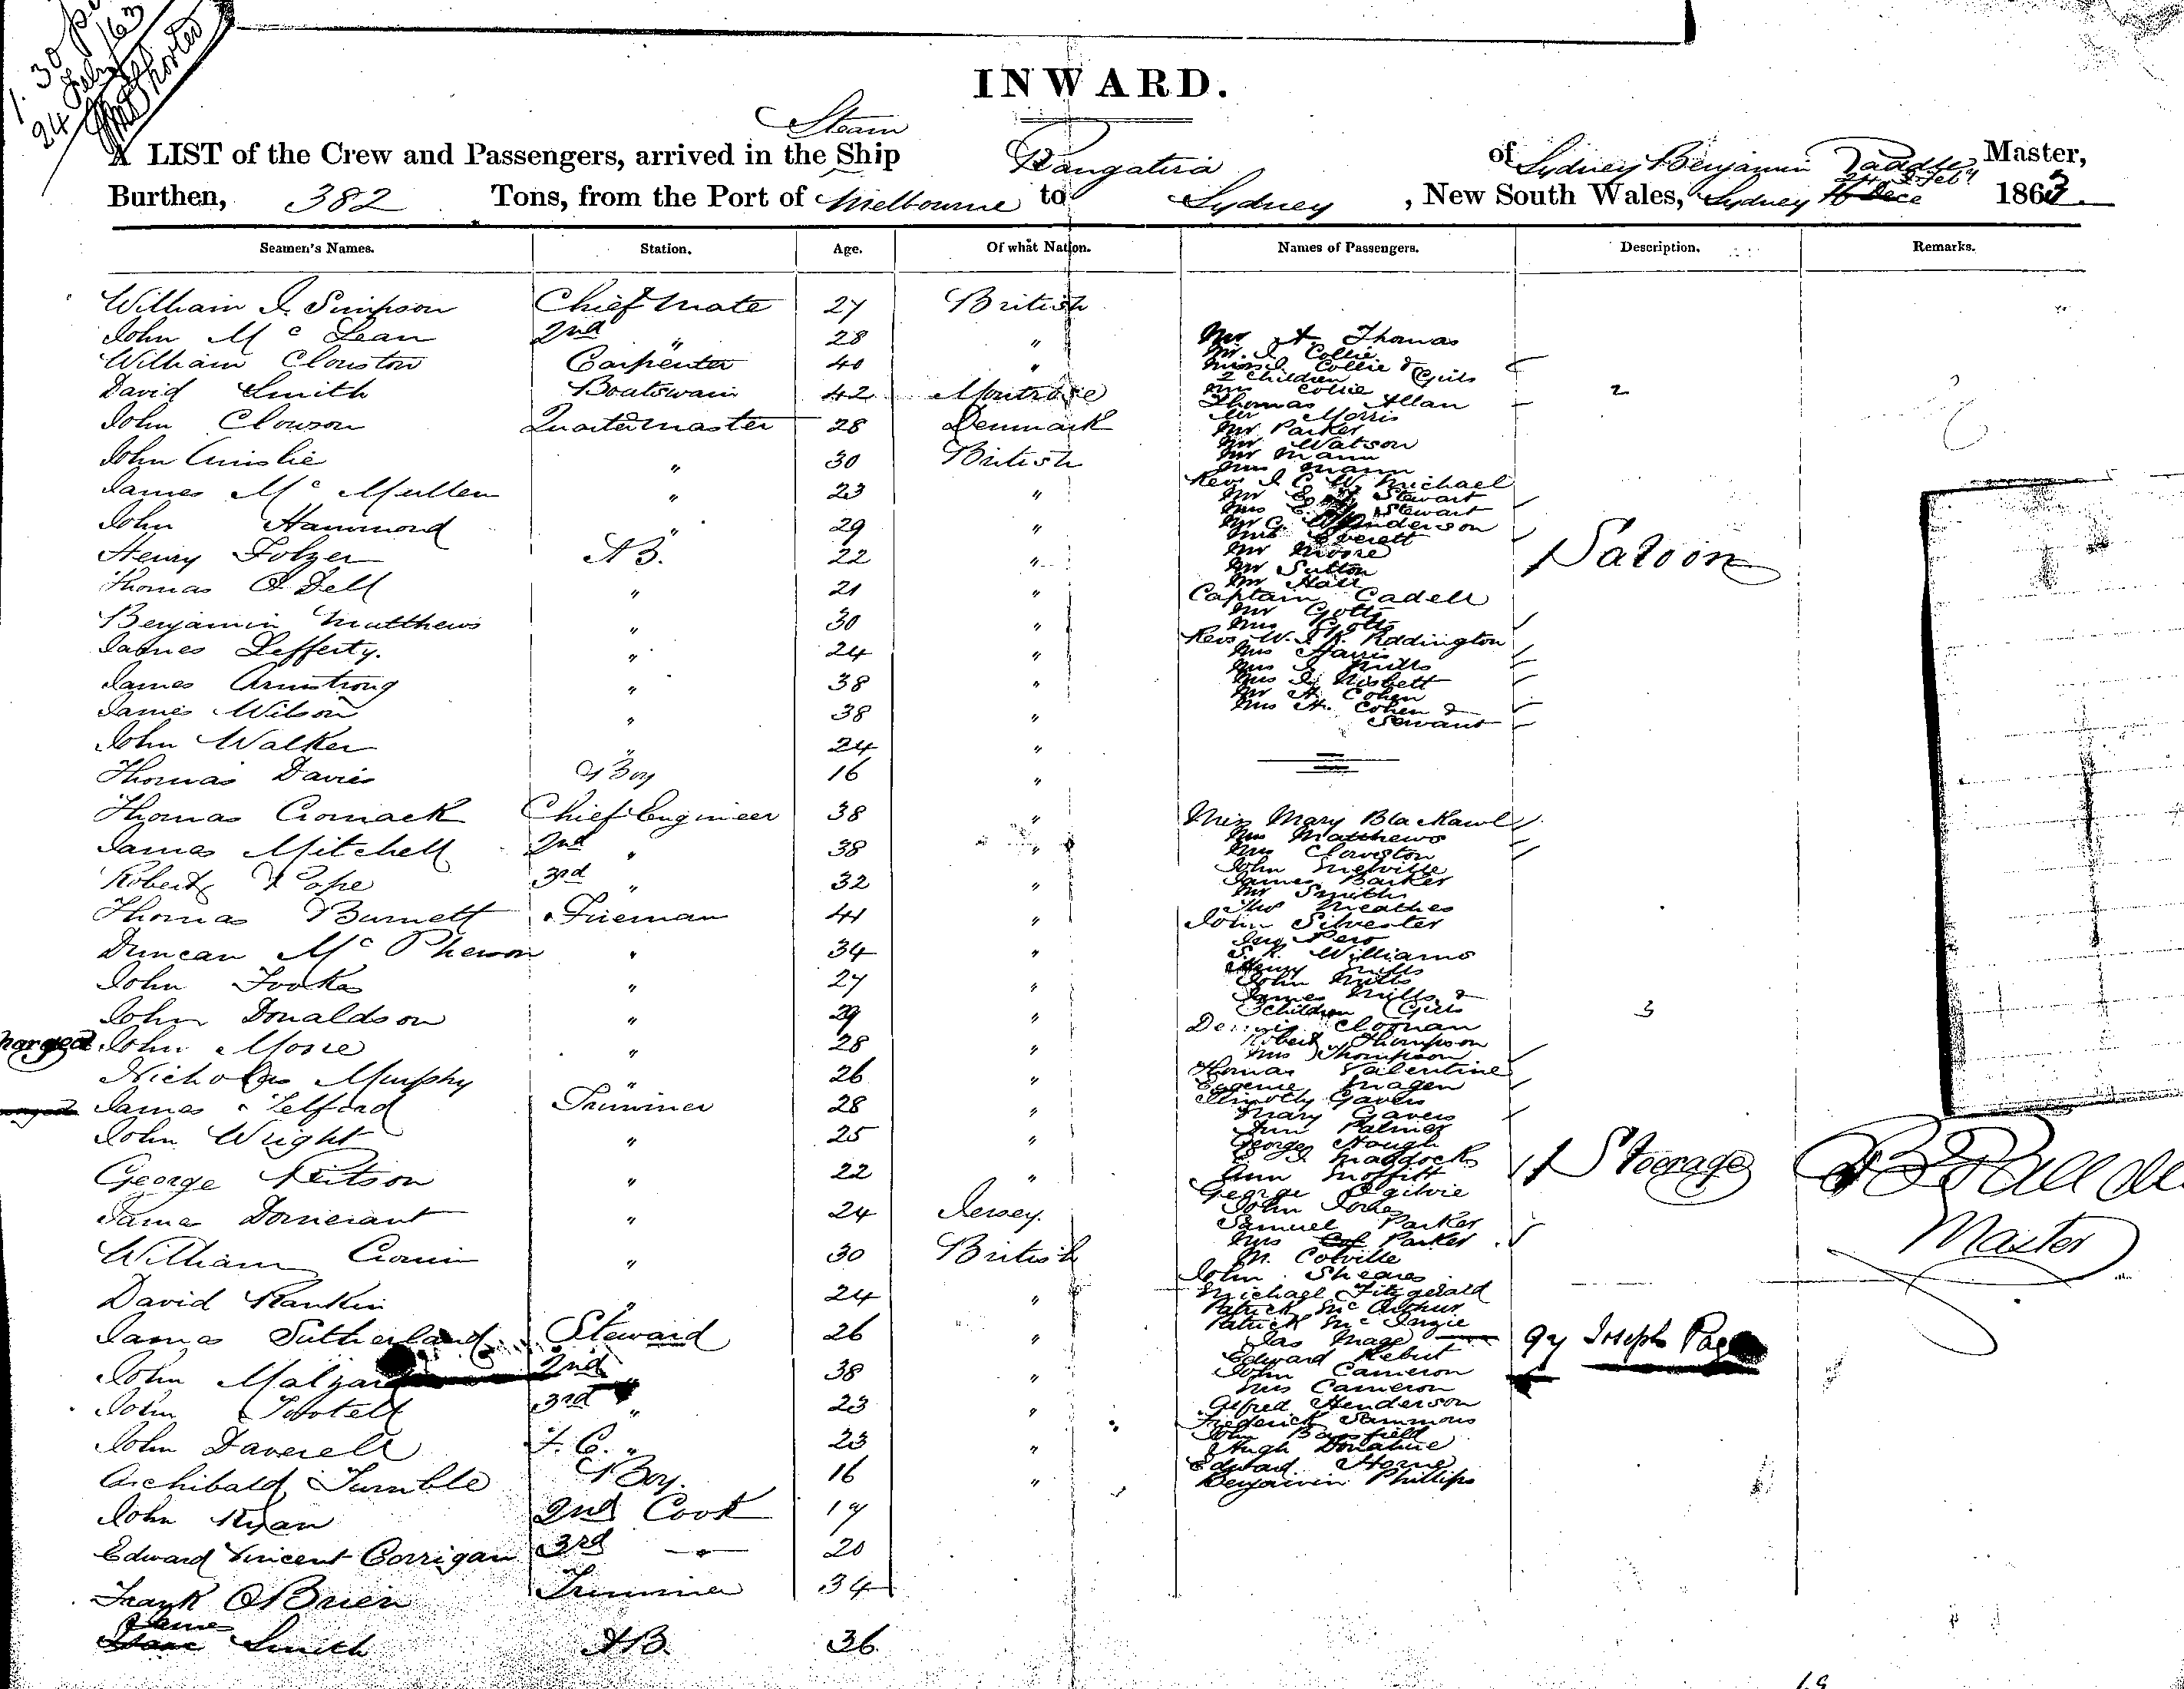 1. 30 p
24 Feb 63
INWARD.
Steam
A LIST of the Crew and Passengers, arrived in the Ship Rangatira of Sydney Benjamin Master,
24 Feby
Burthen, 382 Tons, from the Port of Melbourne to Sydney, New South Wales, Sydney 16 Dece 1863
Seamen's Names. Station. Age. Of what Nation. Names of Passengers. Description. Remarks.
William J. Simpson Chief Mate 27 British
John Mc Lean 2nd " 28 "
William Clouston Carpenter 40 "
David Smith Boatswain 42 Montrose
John Clowson Quartermaster 28 Denmark
John Ainslie " 30 British
James Mc Mullen " 23 "
John Hammond " 29 "
Henry Folzer AB. 22 "
Thomas O Dell " 21 "
Benjamin Matthews " 30 "
James Lefferty. " 24 "
James Armstrong " 38 "
James Wilson " 38 "
John Walker " 24 "
Thomas Davies Boy 16 "
Thomas Cromack Chief Engineer 38 "
James Mitchell 2nd " 38 "
Robert Pope 3rd " 32 "
Thomas Burnett Fireman 41 "
Duncan Mc Pherson " 34 "
John Fookes " 27 "
John Donaldson " 29 "
harged John Mosse " 28 "
Nicholas Murphy " 26 "
James Telford Trimmer 28 "
John Wright " 25 "
George Neitson " 22 "
James Domerant " 24 Jersey.
William Cronin " 30 British
David Rankin " 24 "
James Sutherland Steward 26 "
John Malzard 2nd " 38 "
John Tootell 3rd " 23 "
John Daverell F. C. " 23 "
Archibald Turnble Boy. 16 "
John Ryan 2nd Cook 19
Edward Vincent Corrigan 3rd " 20
Frank OBrien Trimmer 34
James Smith AB. 36
Mr A. Thomas
Mr. J. Collie
Mrs J. Collie &
2 Children Girls 2
Miss Collie
Thomas Allan
Mr Morris
Mr Parker
Mr Watson
Mr Mann
Mrs Mann
Rev J C W. Michael
Mr E Stewart
Mrs E Stewart
Mr G. W Anderson
Mrs Everett
Mr Moore
Mr Sutton
Mr Hall
Saloon
Captain Cadell
Mr Gotts
Mrs Gotts
Rev W. J. K. Piddington
Mrs Harris
Mrs J Mills
Mrs J. Nisbett
Mr A. Cohen
Mrs A. Cohen &
Servant
Miss Mary Blackawl
Mrs Matthews
Mrs Clouston
John Melville
James Barker
Mr Smith
Thos Meathes
John Silvester
Pero
S. K. Williams
Henry Mills
John Mills
James Mills &
3 children Girls 3
Dennis Cloonan
Robert Thompson
Mrs Thompson
Thomas Valentine
Eugenie Magen
Timothy Gavers
Mary Gavers
Ann Palmer
George Hough
E. J. Maddocks
Ann Moffitt
Steerage
George Ogilvie
John Jones
Samuel Parker
Mrs Parker
M. Colville
John Sheares
Michael Fitzgerald
Patrick Mc Arthur
Patrick Mc Ingie
Jas Mage
Edward Hebut
John Cameron
Mrs Cameron
Alfred Henderson
Frederick Sammons
John Banfield
Hugh Donahue
Edward Horne
Benjamin Phillips
qy Joseph Page
Master